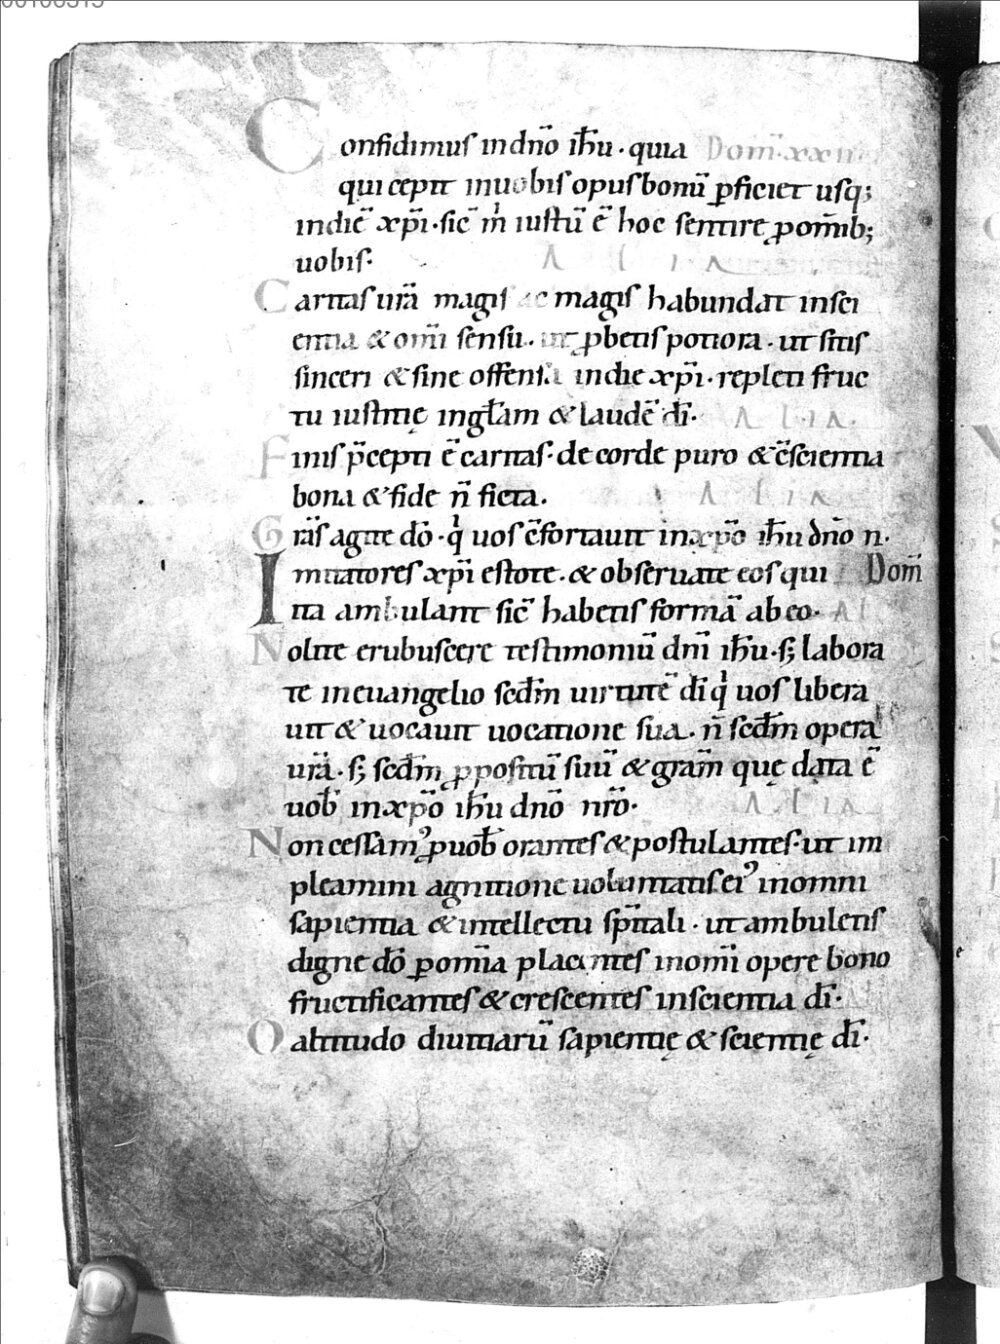 Confidimus in dn̄o ih̄u · quia Dom̄ · xx
qui cepit in uobis opus bonū ꝑficiet usq;
in diē xp̄i · sic̄ m̍ iustū ē hoc sentire ꝓ om̄ib;
uobis · Alia
Caritas ur̄a magis ac magis habundat in sci
entia & om̄i sensu · ut ꝓbetis potiora · ut sitis
sinceri & sine offensa in die xp̄i · repleti fruc
tu iustitię in gl̄am & laudē dī · Alia ·
Finis p̄cepti ē caritas · de corde puro & c̄scientia
bona & fide n̄ ficta · Alia
Grās agite dō · q̍ uos c̄fortauit in xp̄o ih̄u dn̄o n̄ ·
Imitatores xp̄i estote · & obseruate eos qui Dom̄
ita ambulant sic̄ habetis formā ab eo · Al
Nolite erubuscere testimoniū dn̄i ih̄u · s; labora
te in euangelio sed̄m uirtutē dī q̍ uos libera
uit & uocauit uocatione sua · n̄ sed̄m opera
ur̄a · s; sed̄m ꝓpositū suū & grām̄ quę data ē
uob̄ in xp̄o ih̄u dn̄o nr̄o · Alia
Non cessam᾽ ꝓ uob̄ orantes & postulantes · ut im
pleamini agnitione uoluntatis ei᾽ in omni
sapientia & intellectu sp̄itali · ut ambuletis
digne dō ꝑ om̄ia placentes in om̄i opere bono
fructificantes & crescentes in scientia dī ·
O altitudo diuitiarū sapientię & scientię dī ·